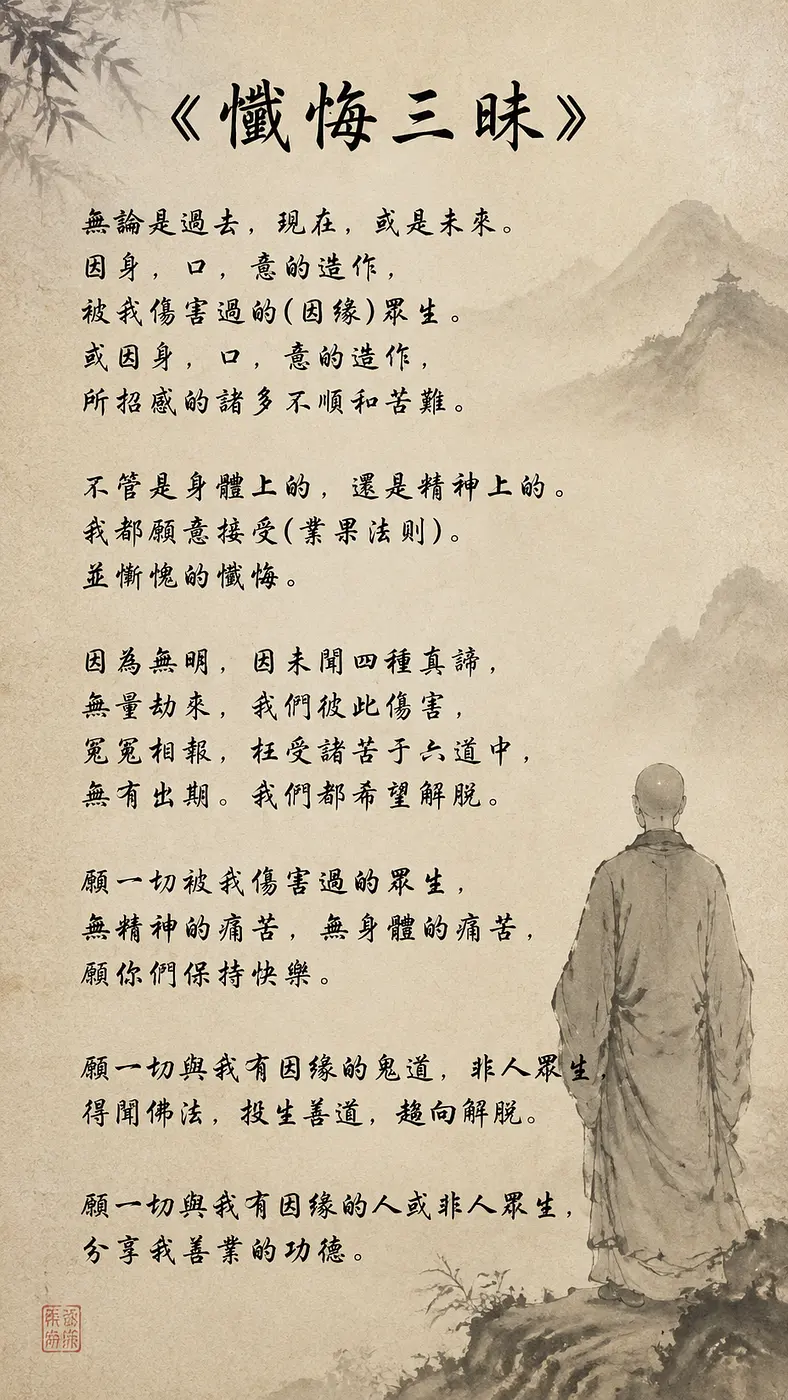 《懺悔三昧》
無論是過去，現在，或是未來。
因身，口，意的造作，
被我傷害過的(因緣)眾生。
或因身，口，意的造作，
所招感的諸多不順和苦難。
不管是身體上的，還是精神上的。
我都願意接受(業果法則)。
並慚愧的懺悔。
因為無明，因未聞四種真諦，
無量劫來，我們彼此傷害，
冤冤相報，枉受諸苦于六道中，
無有出期。我們都希望解脫。
願一切被我傷害過的眾生，
無精神的痛苦，無身體的痛苦，
願你們保持快樂。
願一切與我有因緣的鬼道，非人眾生，
得聞佛法，投生善道，趨向解脫。
願一切與我有因緣的人或非人眾生，
分享我善業的功德。